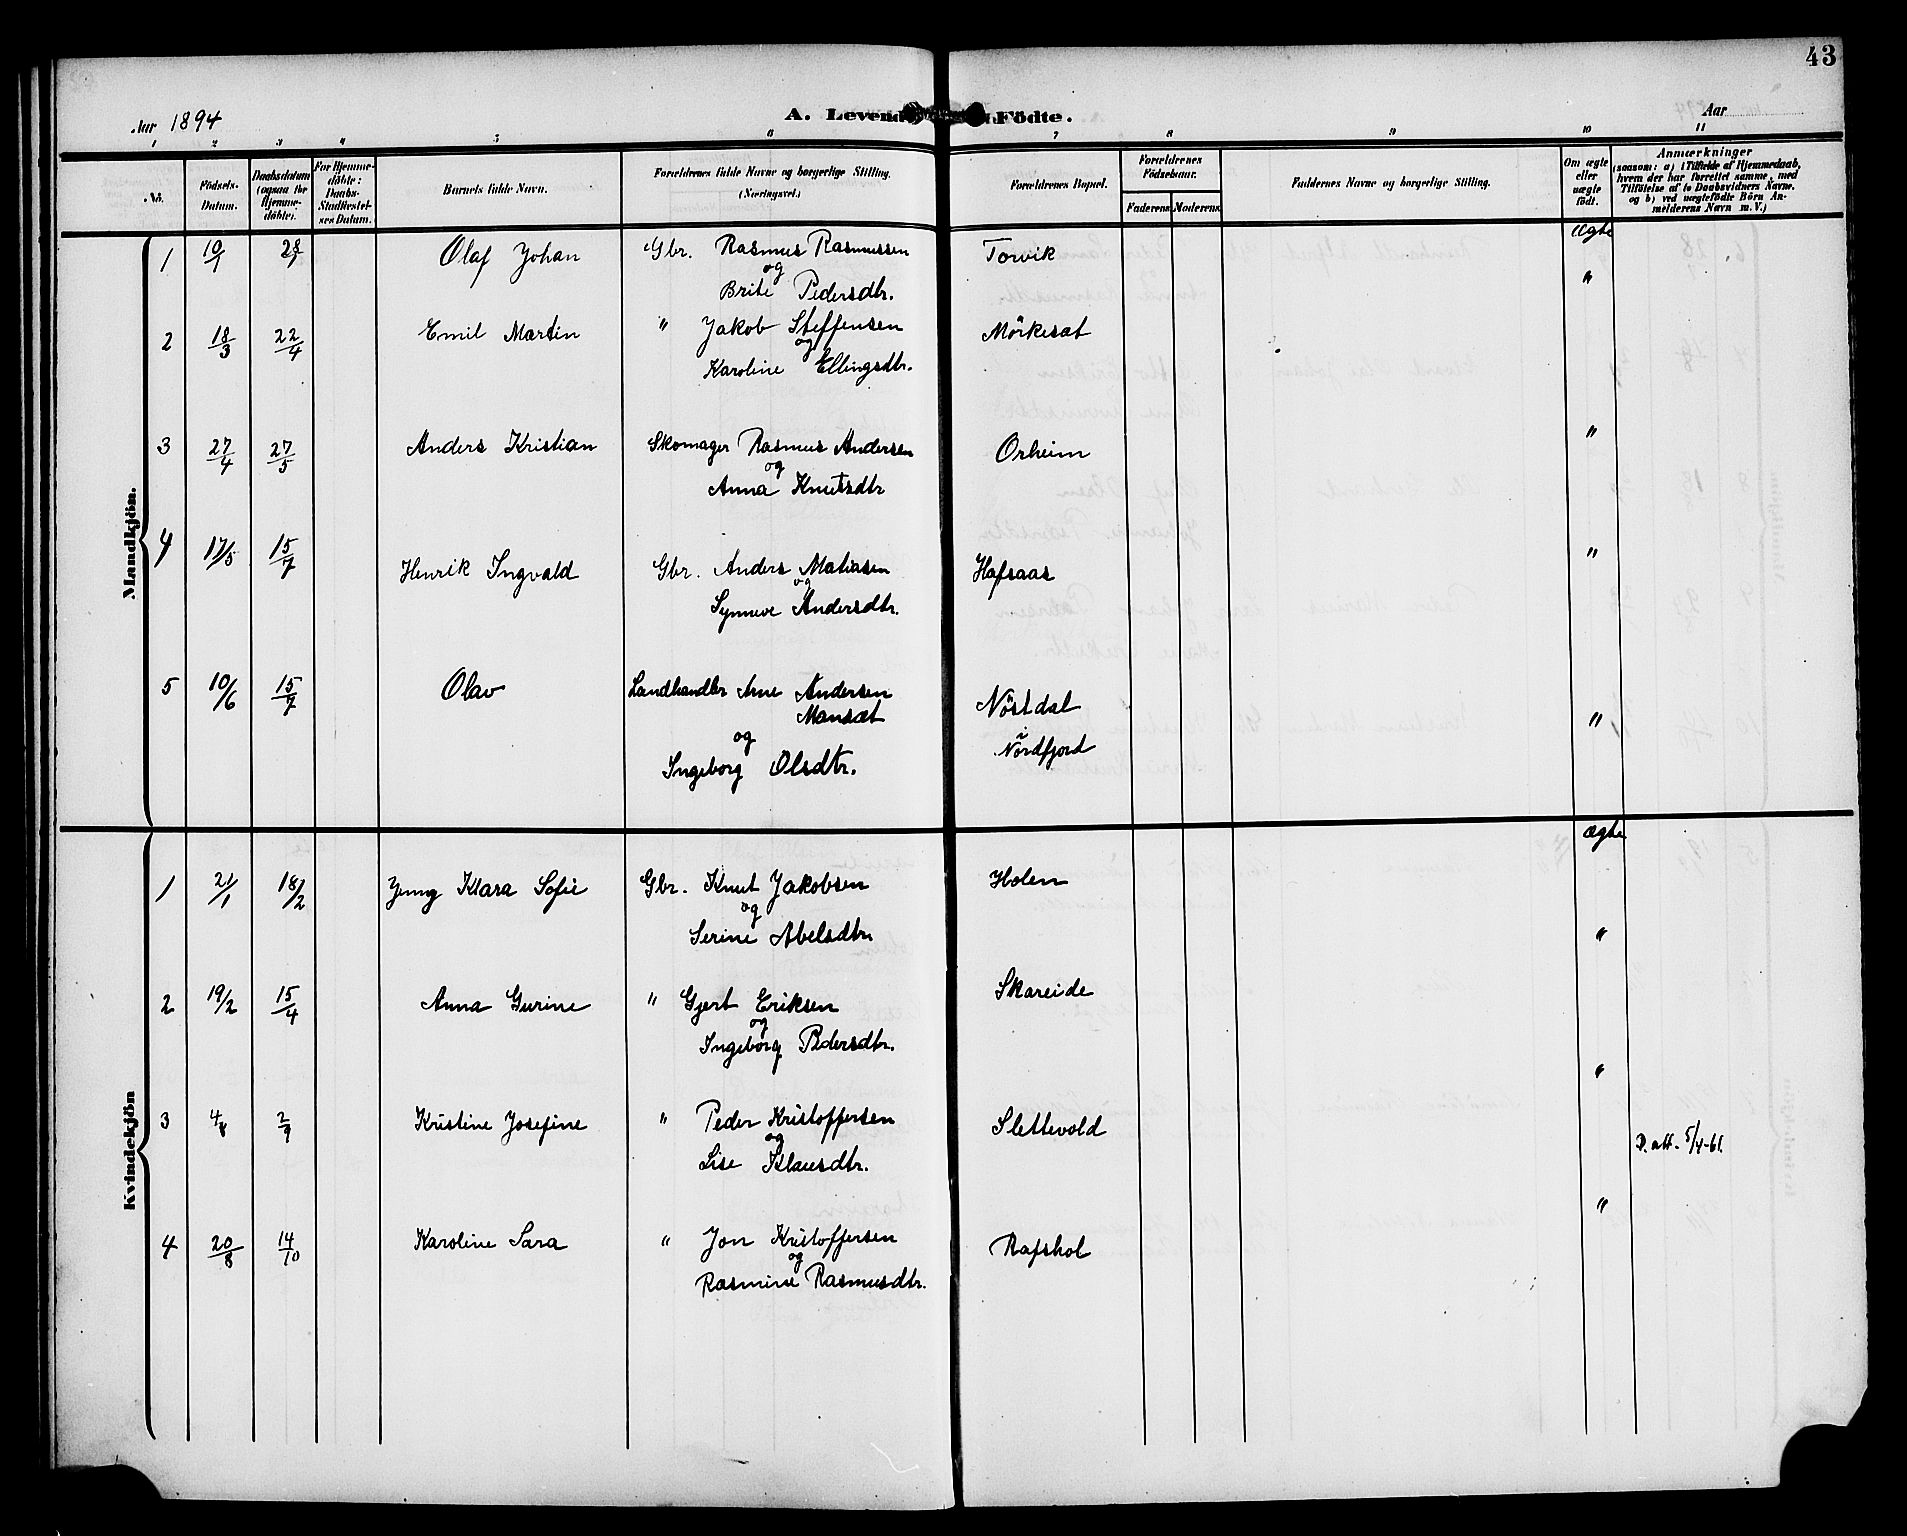 43
Aar 1894
A. Levende Födte.
Aar
1 2 3 4 5 6 7 8 9 10 11
No.
Födsels-Datum.
Daabsdatum (ogsaa for Hjemme-döbte).
For Hjemme-döbte: Daabs-Stadfæstel-ses Datum.
Barnets fulde Navn.
Forældrenes fulde Navne og borgerlige Stilling. (Næringsvei.)
Forældrenes Bopæl.
Forældrenes Födselsaar.
Faderens Moderens
Faddernes Navne og borgerlige Stilling.
Om ægte eller uægte födt.
Anmærkninger
(saasom: a) i Tilfælde af Hjemmedaab,
hvem der har forrettet samme, med
Tilföielse af to Daabsvidners Navne.
og b) ved uægtefödte Börn An-
melderens Navn m. V.)
Mandkjön.
Ægte
1 19/1 28/1 Olaf Johan Gbr. Rasmus Rasmussen Torvik "
og
Brite Pedersdtr.
2 18/3 22/4 Emil Martin " Jakob Steffensen Mörkesæt
og
Karoline Ellingsdtr.
3 27/4 27/5 Anders Kristian Skomager Rasmus Andersen Orheim "
og
Anna Knutsdtr
4 17/5 15/7 Henrik Ingvald Gbr. Anders Matiasen Hafsaas "
og
Synneve Andersdtr.
5 10/6 15/7 Olav Landhandler Arne Andersen Nöstdal "
Mansæt i
og Nordfjord
Ingeborg Olsdtr.
Kvindekjön
Ægte
1 21/1 18/2 Jenny Klara Sofie Gbr. Knut Jakobsen Holen
og
Serine Abelsdtr "
2 19/2 15/4 Anna Gurine " Gjert Eriksen Skareide
og
Ingeborg Pedersdtr. "
3 4/8 2/9 Kristine Josefine " Peder Kristoffersen Slettevold
og D. att. 5/4-61.
Lise Klausdtr.
"
4 20/8 14/10 Karoline Sara " Jon Kristoffersen Rafshol
og
Rasmine Rasmusdtr.